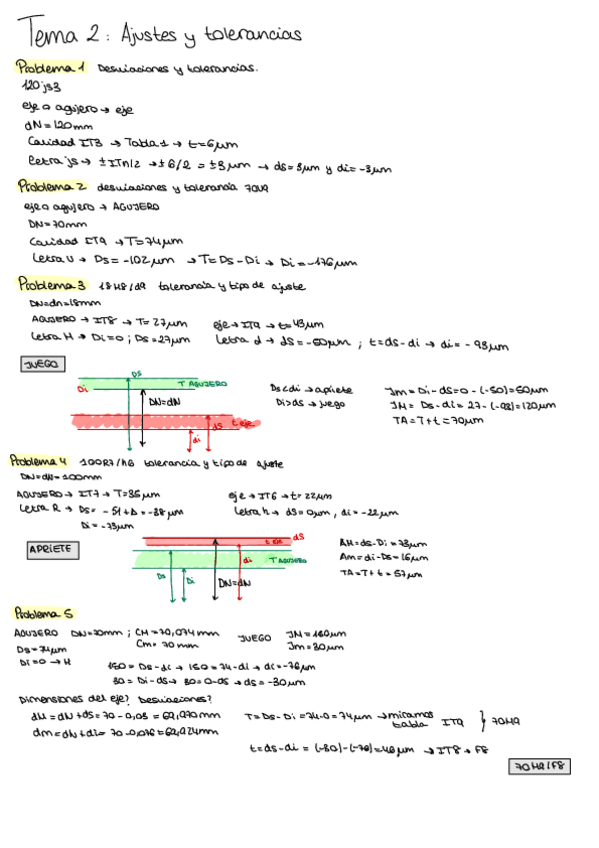 Tema 2: Ajustes y tolerancias
Problema 1 Desviaciones y tolerancias.
120js3
eje o agujero → eje
dN = 120mm
Calidad IT3 → Tabla 1 → t=6μm
Letra js → ± ITn/2 → ± 6/2 = ±3μm → ds=3μm y di=-3μm
Problema 2 desviaciones y tolerancia 70U9
eje o agujero → AGUJERO
DN=70mm
Calidad IT9 → T=74μm
Letra U → Ds=-102μm → T=Ds-Di → Di=-176μm
Problema 3 18H8/d9 tolerancia y tipo de ajuste
DN=dn=18mm
AGUJERO → IT8 → T=27μm eje → IT9 → t=43μm
Letra H → Di=0 ; Ds=27μm Letra d → ds=-50μm ; t=ds-di → di=-93μm
JUEGO
Ds
Di
T AGUJERO
DN=dN
ds
t eje
di
Ds<di → apriete
Di>ds → juego
Jm = Di-ds = 0-(-50)=50μm
JM = Ds-di = 27-(-93)=120μm
TA = T+t = 70μm
Problema 4 100R7/h6 tolerancia y tipo de ajuste
DN=dN=100mm
AGUJERO → IT7 → T=35μm eje → IT6 → t=22μm
Letra R → Ds=-51+Δ=-38μm Letra h → ds=0μm, di=-22μm
Di=-73μm
APRIETE
ds
t eje
di
T AGUJERO
Ds
Di
DN=dN
AM=ds-Di=73μm
Am=di-Ds=16μm
TA=T+t=57μm
Problema 5
AGUJERO DN=70mm ; CM=70,074mm JUEGO JM=150μm
Ds=74μm Cm=70mm Jm=30μm
Di=0 → H
150=Ds-di → 150=74-di → di=-76μm
30=Di-ds → 30=0-ds → ds=-30μm
Dimensiones del eje? Desviaciones?
dM=dN+ds=70-0,03=69,970mm T=Ds-Di=74-0=74μm → miramos tabla IT9 } 70H9
dm=dN+di=70-0,076=69,924mm
t=ds-di=(-30)-(-76)=46μm → IT8 → f8
70H9/f8